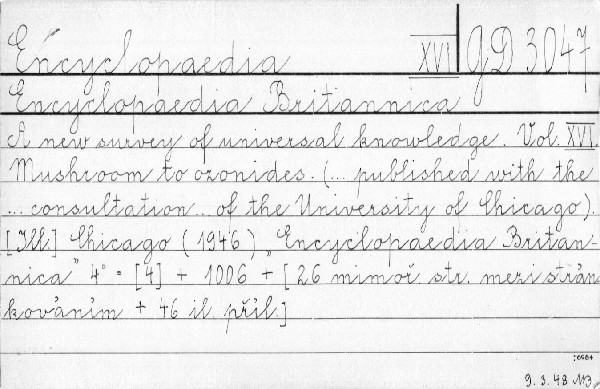 Encyclopaedia XVI GD 3047
Encyclopaedia Britannica
A new survey of universal knowledge. Vol. XVI.
Mushroom to ozonides. (... published with the
... consultation .. of the University of Chicago).
[Ill.] Chicago (1946) „Encyclopaedia Britan-
nica" 4° = [4] + 1006 + [26 mimoř str. mezi strán
kováním + 46 il. příl.]
9. 3. 48